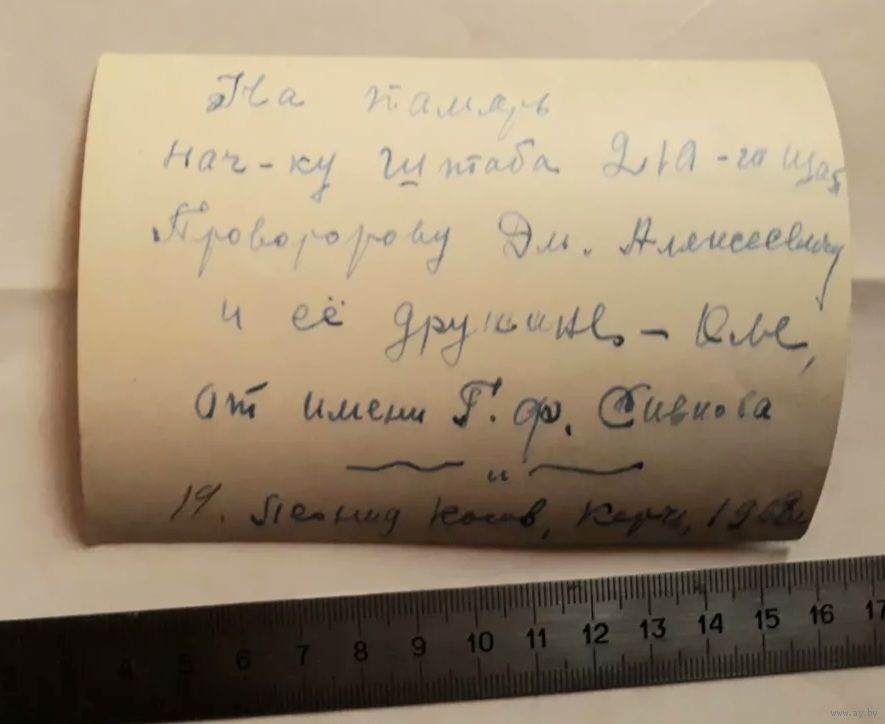 На память
нач-ку штаба 210-го шап
Проворорову Дм. Алексеевичу
и её дружине - Оле,
от имени Г. Ф. Сивкова
и
Леонид Косов, Керчь, 1968г.
4 5 6 7 8 9 10 11 12 13 14 15 16 17
www.ay.by